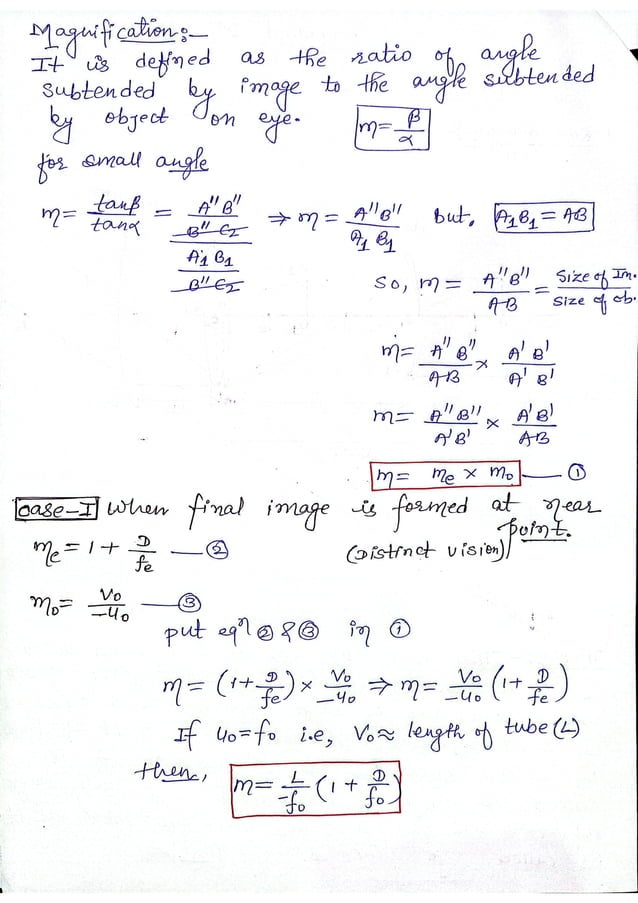 Magnification:-
It is defined as the ratio of angle
subtended by image to the angle subtended
by object on eye. m = β/α
for small angle
m = tanβ/tanα = (A"B"/B"C₂)/(A'₁B₁/B"C₂) ⇒ m = A"B"/A₁B₁ but, A₁B₁ = AB
So, m = A"B"/AB = Size of Im./Size of ob.
m = A"B"/AB × A'B'/A'B'
m = A"B"/A'B' × A'B'/AB
m = mₑ × m₀ — ①
Case-I When final image is formed at near
point.
mₑ = 1 + D/fₑ — ② (Distinct vision)
m₀ = V₀/-u₀ — ③
put eqⁿ ② & ③ in ①
m = (1 + D/fₑ) × V₀/-u₀ ⇒ m = V₀/-u₀ (1 + D/fₑ)
If u₀ = f₀ i.e, V₀ ≈ length of tube (L)
then, m = L/-f₀ (1 + D/f₀)